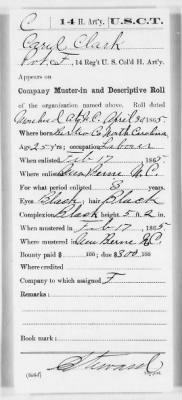 C | 14 H. Art'y. | U.S.C.T.
Clark
Pvt., Co. F, 14 Reg't U. S. Col'd H. Art'y.
Appears on
Company Muster-in and Descriptive Roll
of the organization named above. Roll dated
N.C., Apr 30 1865.
Where born Co North Carolina
Age 25 y'rs; occupation Laborer
When enlisted Feb 17, 1865.
Where enlisted New Berne N.C.
For what period enlisted 3 years.
Eyes Black, hair Black
Complexion Black height 5 ft. 2 in.
When mustered in Feb 17, 1865
Where mustered in New Berne N.C.
Bounty paid $ 100; due $300 100
Where credited
Company to which assigned F
Remarks:
Book mark:
Stewart
Copyist.